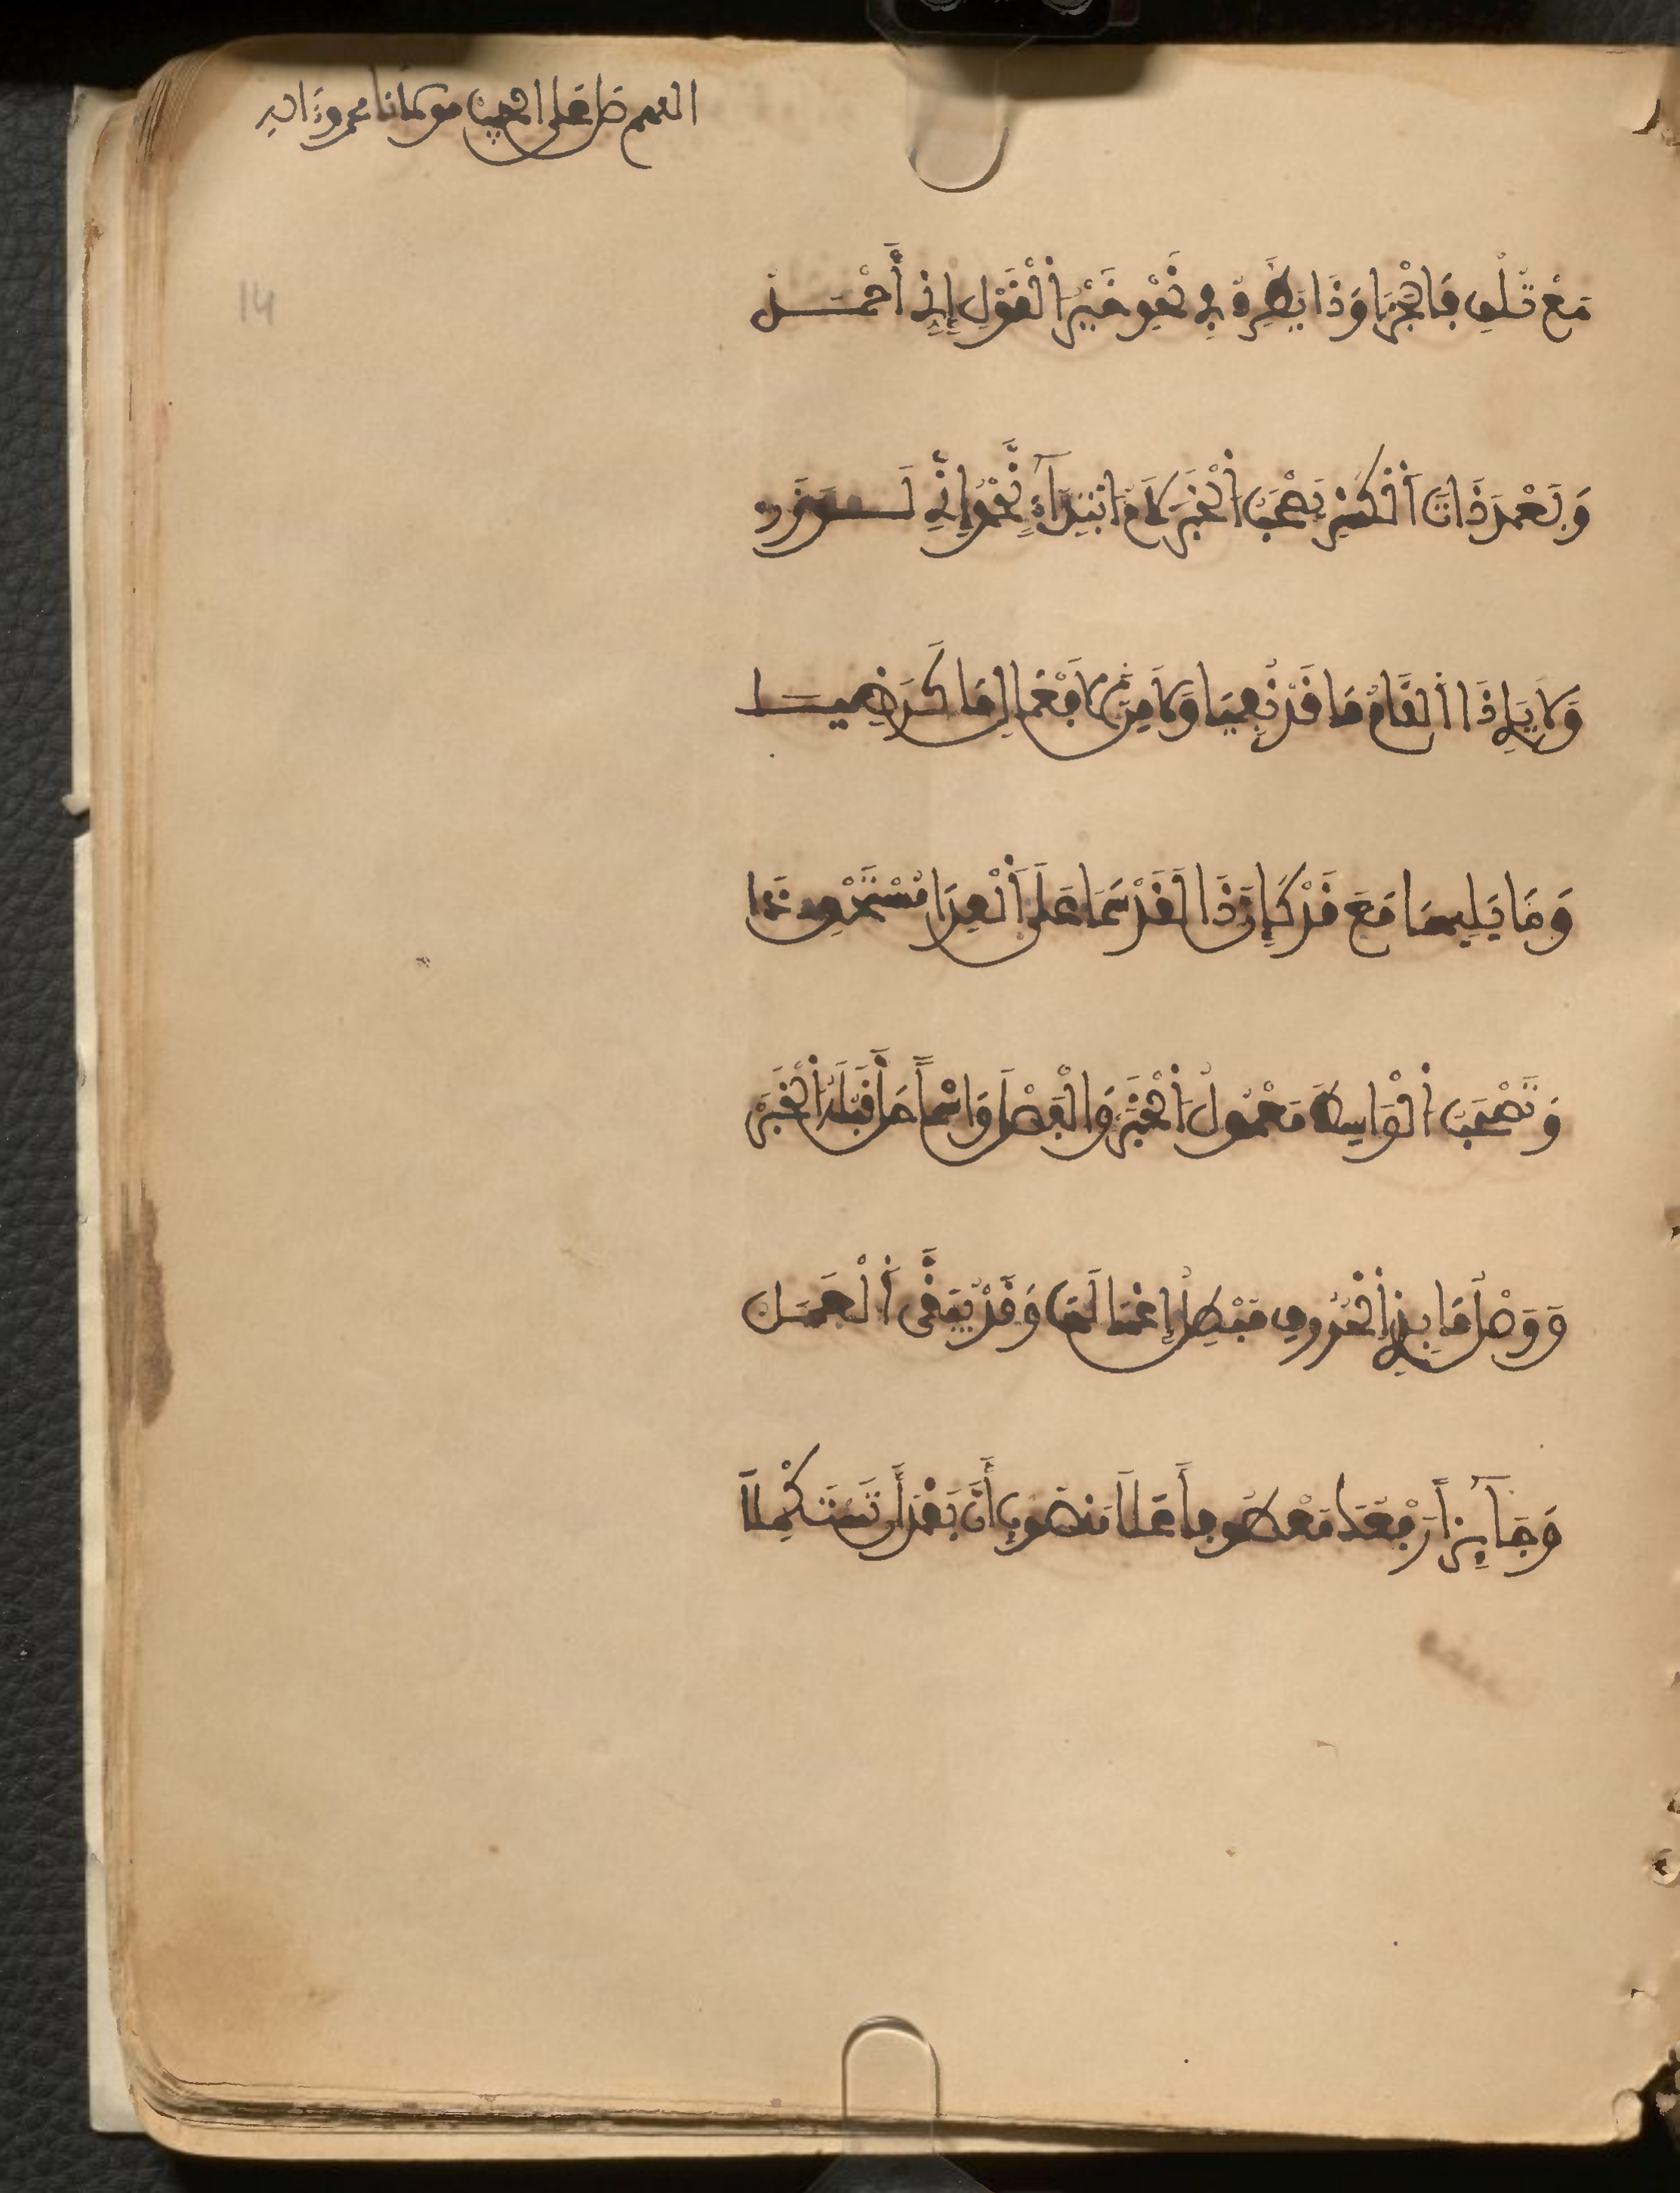 اللهم صل على الحبيب مولانا محمد وءاله
14
مَعْ تِلْوِ فَا الْجَزَا وَذَا يَطَّرِدُ فِي نَحْوِ خَيْرُ الْقَوْلِ إِنِّي أَحْمَدُ
وَبَعْدَ ذَاتِ الْكَسْرِ تَصْحَبُ الْخَبَرْ لَامُ ابْتِدَآءٍ نَّحْوُ إِنِّي لَوَزَرْ
وَلَا يَلِي ذَا اللَّامَ مَا قَدْ نُفِيَا وَلَا مِنَ الَافْعَالِ مَا كَرَضِيَا
وَقَدْ يَلِيهَا مَعَ قَدْ كَإِنَّ ذَا لَقَدْ سَمَا عَلَى الْعِدَا مُسْتَحْوِذَا
وَتَصْحَبُ الْوَاسِطَ مَعْمُولَ الْخَبَرْ وَالْفَصْلَ وَاسْماً حَلَّ قَبْلَهُ الْخَبَرْ
وَوَصْلُ مَا بِذِي الْحُرُوفِ مُبْطِلُ إِعْمَالَهَا وَقَدْ يُبَقَّى الْعَمَلُ
وَجَآئِزٌ رَفْعُكَ مَعْطُوفاً عَلَى مَنْصُوبِ إِنَّ بَعْدَ أَن تَسْتَكْمِلَا